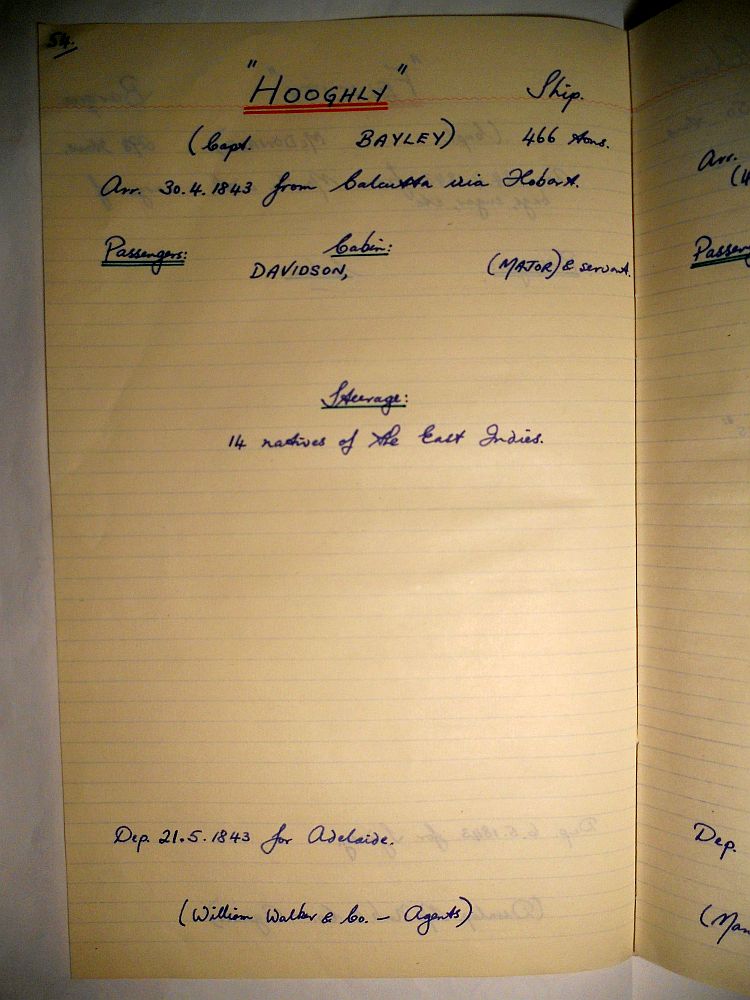 54.
"HOOGHLY" Ship.
(Capt. BAYLEY) 466 tons.
Arr. 30.4.1843 from Calcutta via Hobart.
Passengers: Cabin:
DAVIDSON, (MAJOR) & servant.
Steerage:
14 natives of the East Indies.
Dep. 21.5.1843 for Adelaide.
(William Walker & Co. – Agents)
Arr.
Dep.